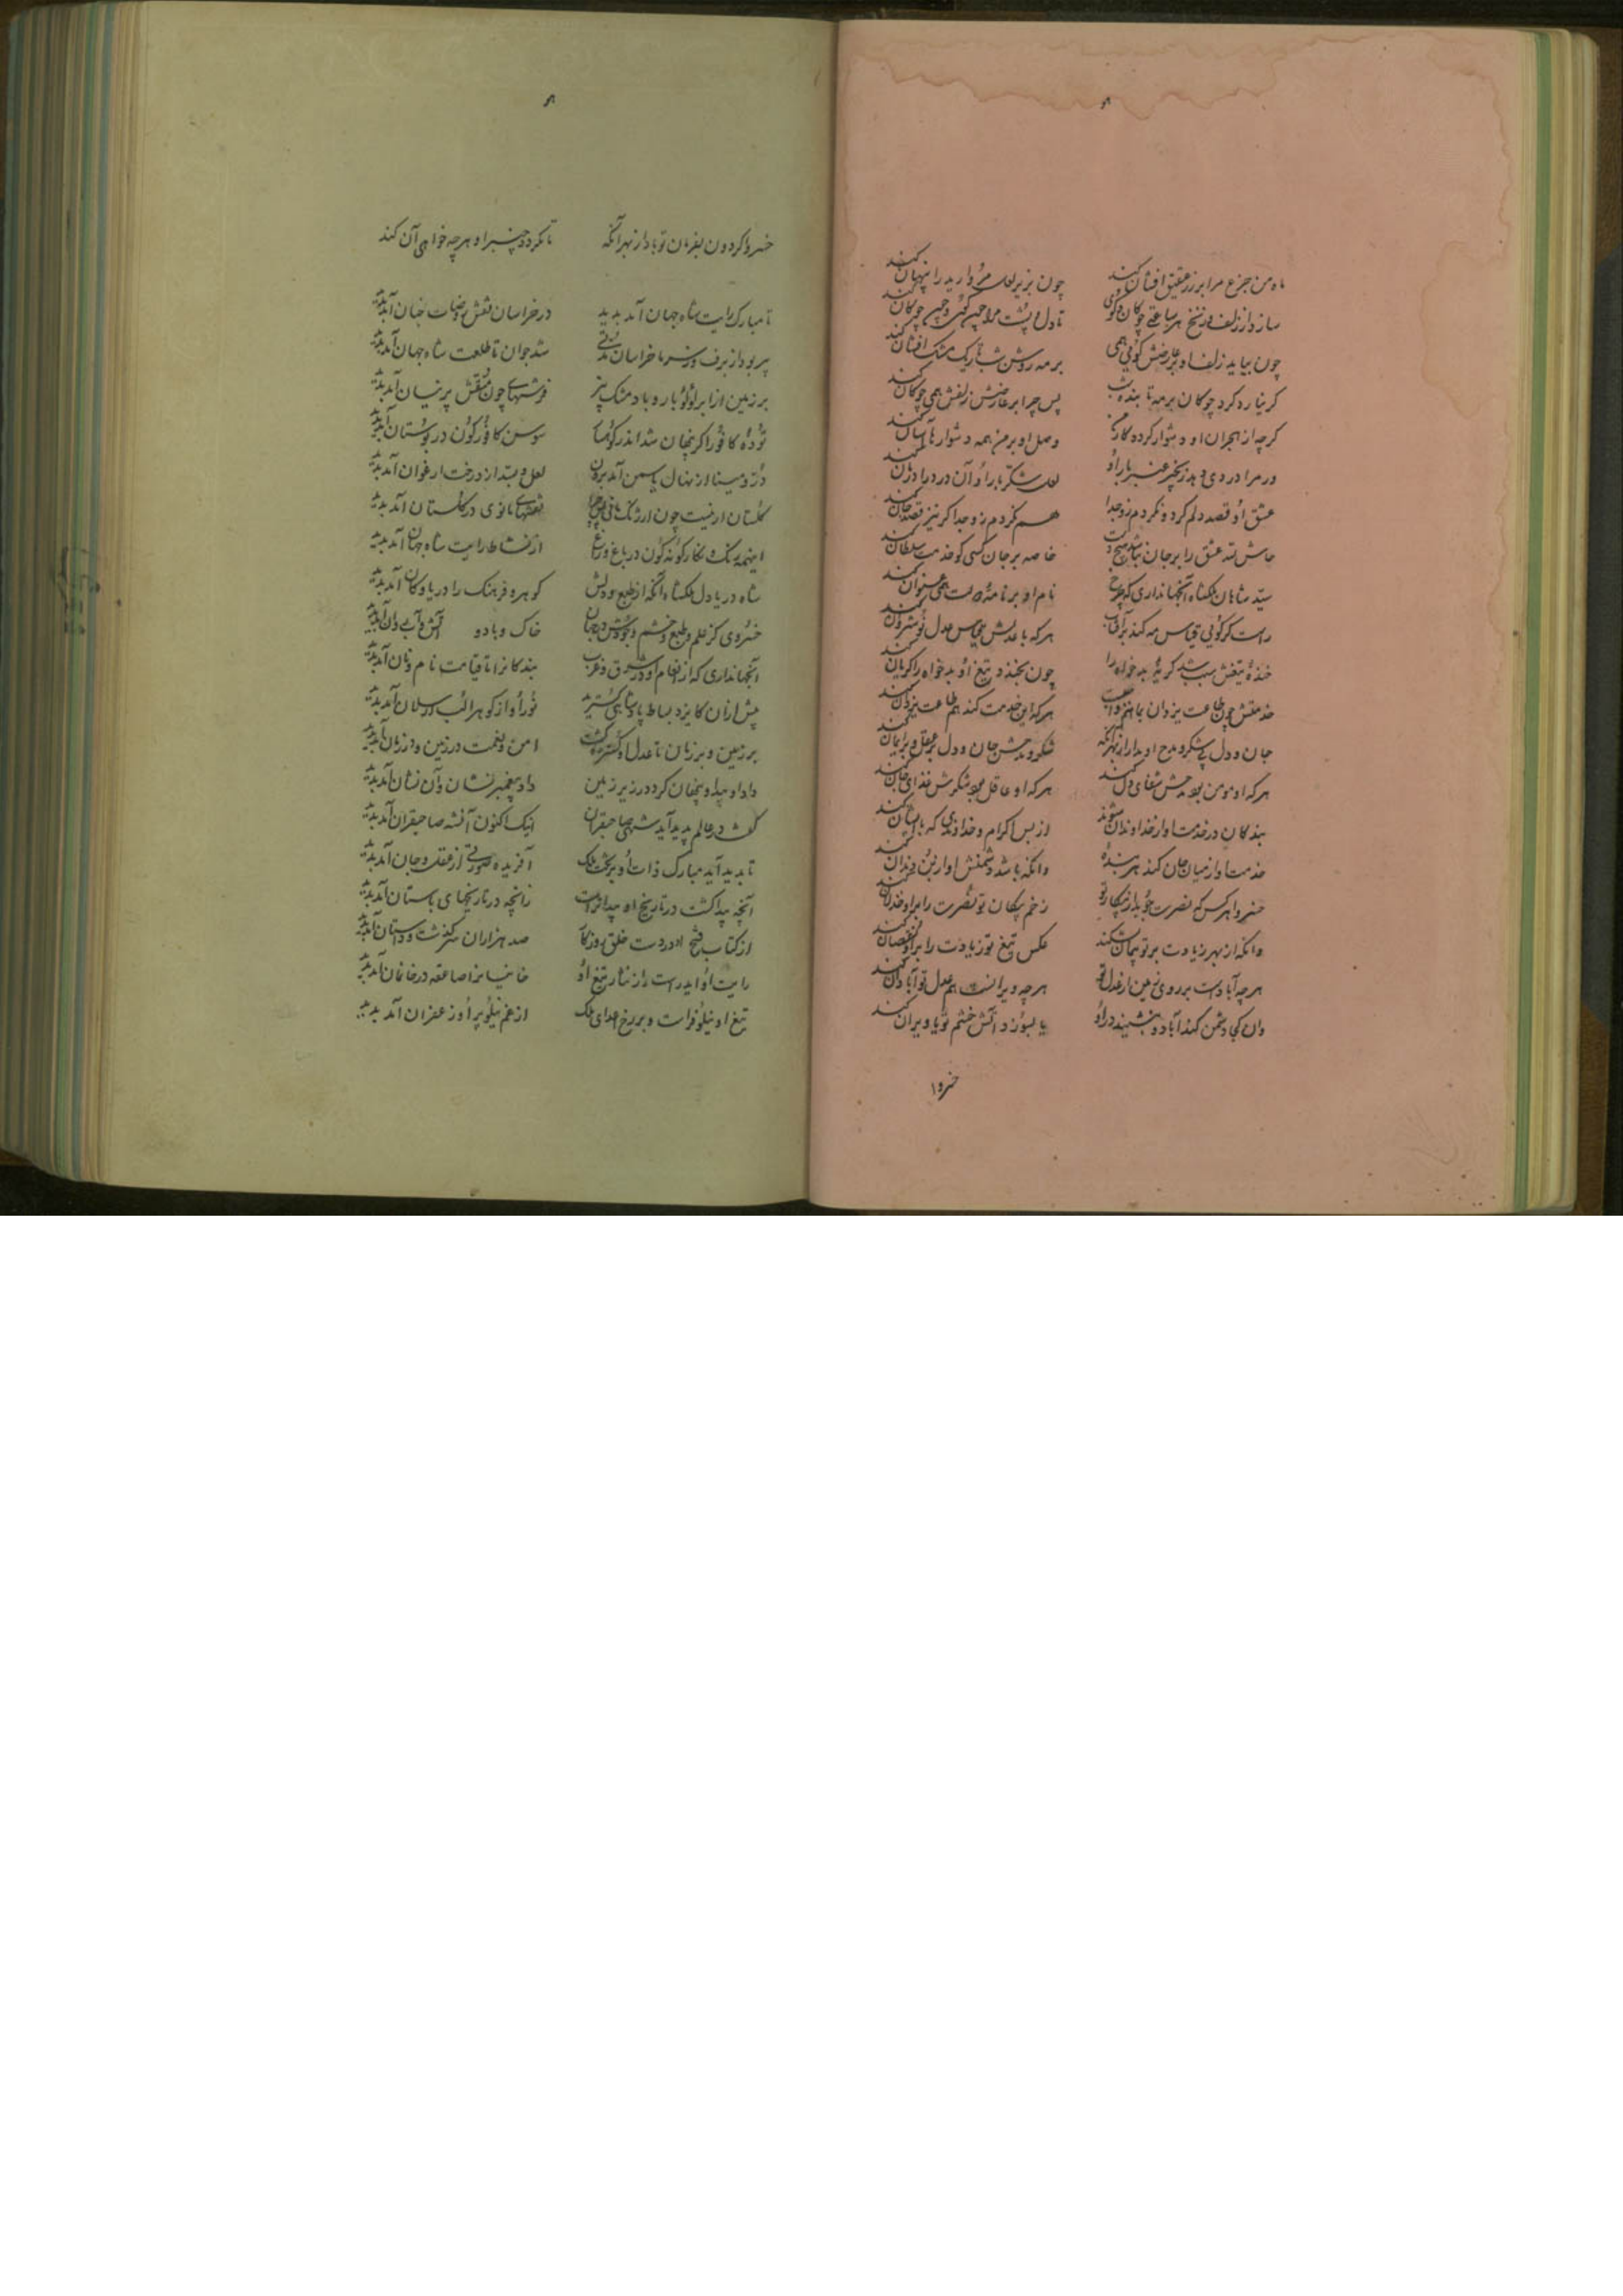 ماه من جزع مرا بر زر عقیق افشان کند چون بزیر لعل مروارید را پنهان کند
سازد از زلف و زنخ هر ساعتی چوکان و کوی تا دل و پشت مرا چون کوی و چون چوکان کند
چون بیاید زلف او بر عارضش کوئی همی بر مه روشن شب تاریک مشک افشان کند
کر نیارد کرد چوکان بر مه تابنده شب پس چرا بر عارضش زلفش همی چوکان کند
کرچه از هجران او دشوار کرده کار من وصل او بر من همه دشوارها آسان کند
ور مرا دردی دهد زنجیر عنبر بار او لعل شکر بار او آن درد را درمان کند
عشق او قصد دلم کرد و نکردم زو جدا هم نکردم زو جدا کر نیز قصد جان کند
حاش لله عشق را بر جان نباشد هیچ دست خاصه بر جان کسی کو خدمت سلطان کند
سید شاهان ملکشاه آنجهانداری که چرخ نام او بر نامه دولت همی عنوان کند
راست کوئی قیاس مه کند بر آفتاب هر که با عدلش قیاس عدل نوشروان کند
خنده تیغش سبب شد کریه بدخواه را چون بخندد تیغ او بدخواه را کریان کند
خدمتش چون طاعت یزدان بما بر واجبست هرکه این خدمت کند هم طاعت یزدان کند
جان و دل پی شکر و مدح او مدار از بهر آنکه شکر و مدحش جان و دل بر عقل و بر ایمان کند
هرکه او مومن بود مدحش شفای دل کند هرکه او عاقل بود شکرش غذای جان کند
بندکان در خدمت او از خداوندان شوند از بس اکرام و خداوندی که با ایشان کند
خدمت او از میان جان کند هر بنده وانکه باشد دشمنش او از بن دندان کند
خسروا هر کس که نصرت جوید از پیکار تو زخم پیکان تو نصرت را بر او خذلان کند
وانکه از بهر زیادت بر تو پیمان بشکند عکس تیغ تو زیادت را بر او نقصان کند
هرچه آبادست بر روی زمین از عدل تو هرچه ویرانست هم عدل تو آبادان کند
وان کجا دشمن کند آباد و بنشیند در او یا بسوزد آتش خشم تو یا ویران کند
خسروا
خسروا کردون بفرمان تو باد از بهر آنکه تا نکردد چنبر او هرچه خواهی آن کند
تا مبارک رایت شاه جهان آمد پدید در خراسان نقش روضات جنان آمد پدید
پیر بود از برف و سرما خراسان مدتی شد جوان تا طلعت شاه جهان آمد پدید
بر زمین از ابر لؤلؤ بار و باد مشک بیز فرشهای چون منقش پرنیان آمد پدید
توده کافور اکر پنهان شد اندر کوهسار سوسن کافورکون در بوستان آمد پدید
در و مینا از نهال یاسمن آمد برون لعل و بسد از درخت ارغوان آمد پدید
کلستان ار نیست چون ارژنک مانی پس چرا نقشهای مانوی در کلستان آمد پدید
اینهمه رنک و نکار کونه کون در باغ و راغ از نشاط رایت شاه جهان آمد پدید
شاه دریا دل ملکشاه آنکه از طبع و دلش کوهر و فرهنک را دریا و کان آمد پدید
خسروی کز علم و طبع و خشم و جودش در جهان خاک و باد و آتش و آب روان آمد پدید
آنجهانداری که از انعام او در شرق و غرب بندکانرا تا قیامت نام و نان آمد پدید
پیش از آن کایزد بساط پادشاهی کسترید نور او از کوهر الب ارسلان آمد پدید
بر زمین و بر زمان تا عدل او کسترده کشت امن و نعمت در زمین و در زمان آمد پدید
داد او بیداد پنهان کرد در زیر زمین داد پیغمبر نشان و آن نشان آمد پدید
کفت در عالم پدید آید شهی صاحبقران اینک اکنون آنشه صاحبقران آمد پدید
تا پدید آید مبارک ذات او بر تخت ملک آفریده صورتی از عقل و جان آمد پدید
آنچه پیدا کشت در تاریخ او پیداترست زانچه در تاریخهای باستان آمد پدید
از کتاب فتح او در دست خلق روزکار صد هزاران سرکذشت و داستان آمد پدید
رایت او ایدر است و از نثار تیغ او خانیانرا صاعقه در خانمان آمد پدید
تیغ او نیلوفرست و بر رخ اعدای ملک از غم نیلوفر او زعفران آمد پدید